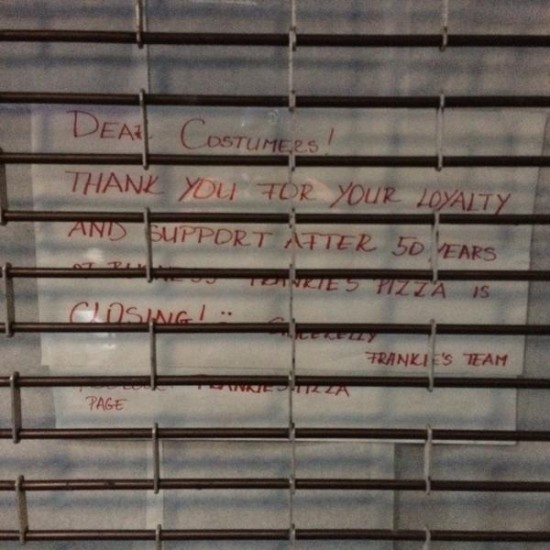 DEAR COSTUMERS!
THANK YOU FOR YOUR LOYALTY
AND SUPPORT AFTER 50 YEARS
OF BUSINESS FRANKIE'S PIZZA IS
CLOSING! :) SINCERELLY
FRANKIE'S TEAM
FRANKIE'S PIZZA
PAGE